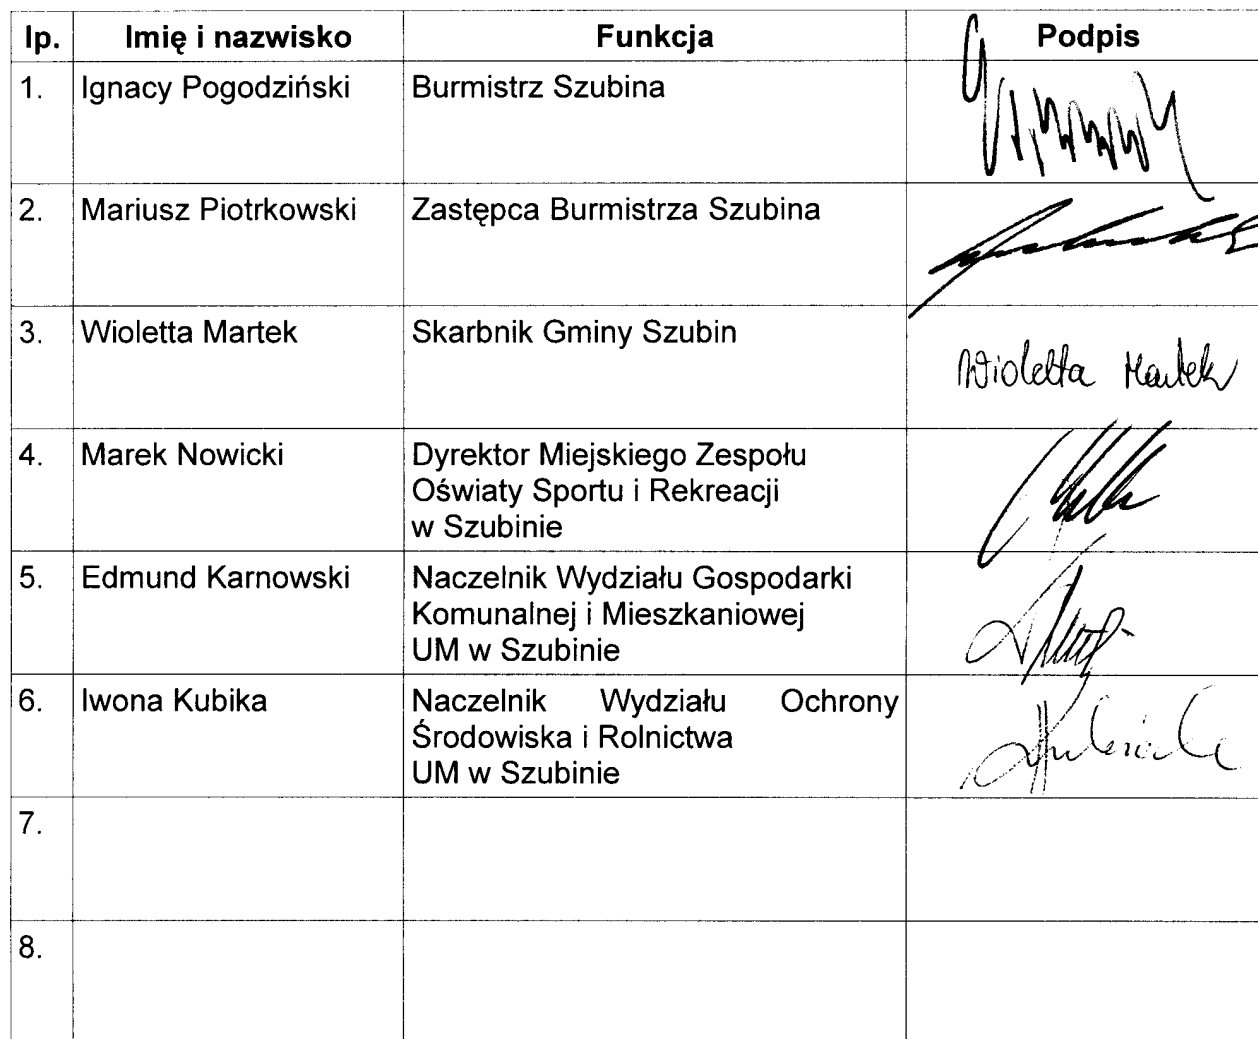 lp. Imię i nazwisko Funkcja Podpis
1. Ignacy Pogodziński Burmistrz Szubina
2. Mariusz Piotrkowski Zastępca Burmistrza Szubina
3. Wioletta Martek Skarbnik Gminy Szubin
Wioletta Martek
4. Marek Nowicki Dyrektor Miejskiego Zespołu
Oświaty Sportu i Rekreacji
w Szubinie
5. Edmund Karnowski Naczelnik Wydziału Gospodarki
Komunalnej i Mieszkaniowej
UM w Szubinie
6. Iwona Kubika Naczelnik Wydziału Ochrony
Środowiska i Rolnictwa
UM w Szubinie
7.
8.